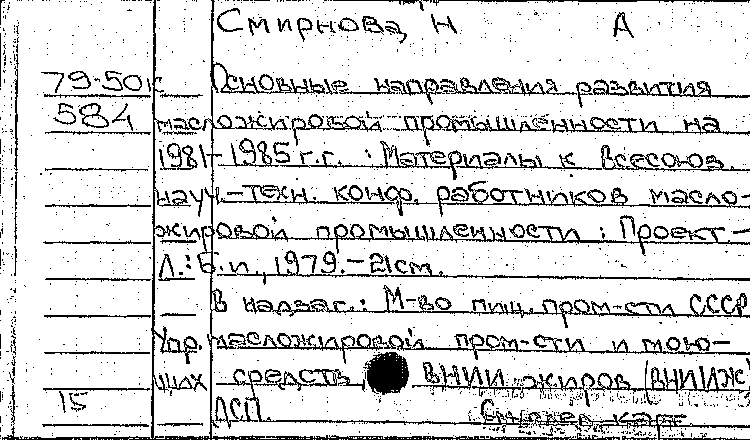 Смирнова, Н А
79-50к Основные направления развития
584 масложировой промышленности на
1981-1985 г.г. : Материалы к Всесоюз.
науч.-техн. конф. работников масло-
жировой промышленности : Проект-
Л.: Б.и., 1979.-21см.
В надзаг.: М-во пищ. пром-сти СССР
Упр. масложировой пром-сти и мою-
щих средств, ВНИИ жиров (ВНИИЖ)
15 ДСП.